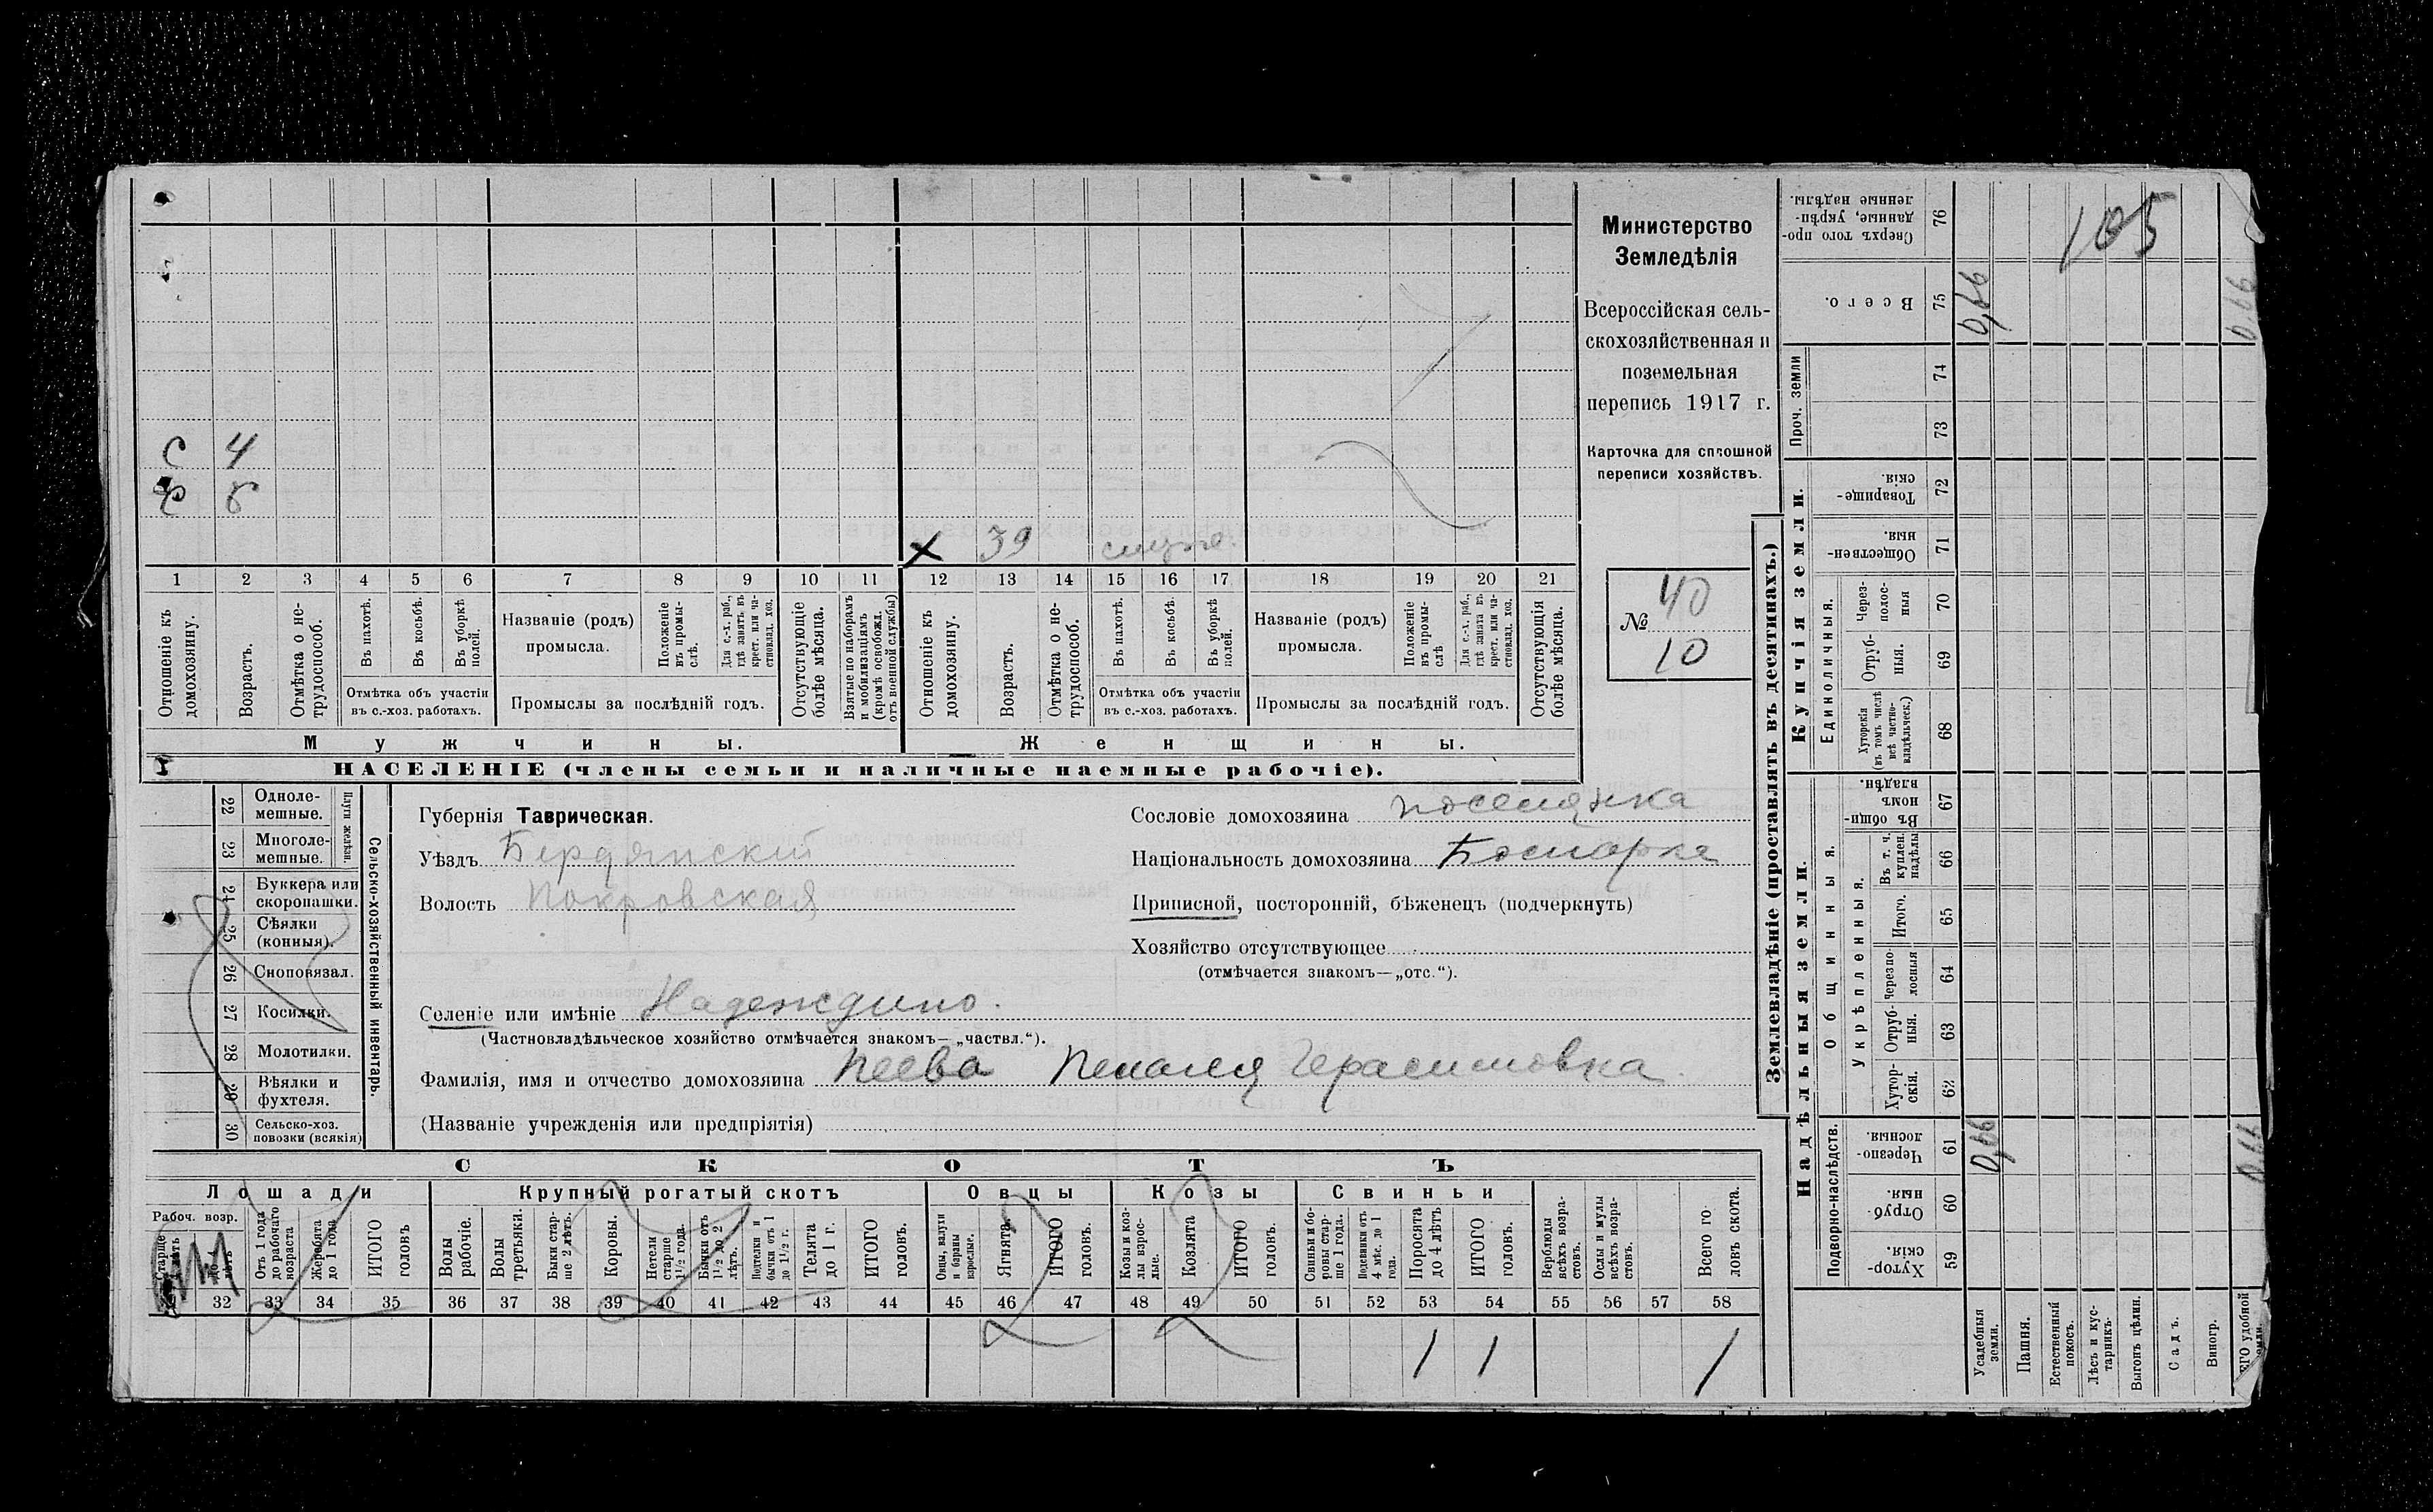 С 4
С 6
X 39
1 2 3 4 5 6 7 8 9 10 11 12 13 14 15 16 17 18 19 20 21
Отношеніе къ домохозяину.
Возрастъ.
Отмѣтка о не-трудоспособ.
Въ пахотѣ.
Въ косьбѣ.
Въ уборкѣ полей.
Отмѣтка объ участіи
въ с.-хоз. работахъ.
Названіе (родъ)
промысла.
Положеніе въ промы-слѣ.
Для с.-х. раб., гдѣ занятъ въ крест. или ча-ствовлад. хоз.
Промыслы за послѣдній годъ.
Отсутствующіе болѣе мѣсяца.
Взятые по наборамъ и мобилизаціямъ (кромѣ освобожд. отъ военной службы)
Отношеніе къ домохозяину.
Возрастъ.
Отмѣтка о не-трудоспособ.
Въ пахотѣ.
Въ косьбѣ.
Въ уборкѣ полей.
Отмѣтка объ участіи
въ с.-хоз. работахъ.
Названіе (родъ)
промысла.
Положеніе въ промы-слѣ
Для с.-х. раб., гдѣ занята въ крест. или ча-ствовлад. хоз.
Промыслы за послѣдній годъ.
Отсутствующія болѣе мѣсяца.
Мужчины.
Женщины.
НАСЕЛЕНІЕ (члены семьи и наличные наемные рабочіе).
Министерство
Земледѣлія
Всероссійская сель-
скохозяйственная и
поземельная
перепись 1917 г.
Карточка для сплошной
переписи хозяйствъ.
№ 40
10
22 Одноле-мешные.
23 Многоле-мешные.
Плуги желѣзн.
24 Буккера или скоропашки.
25 Сѣялки (конныя).
26 Сноповязал.
27 Косилки.
28 Молотилки.
29 Вѣялки и фухтеля.
30 Сельско-хоз. повозки (всякія)
Сельско-хозяйственный инвентарь.
Губернія Таврическая.
Уѣздъ Бердянский
Волость Покровская
Сословіе домохозяина поселянка
Національность домохозяина Болгарка
Приписной, посторонній, бѣженецъ (подчеркнуть)
Хозяйство отсутствующее
(отмѣчается знакомъ—„отс.“).
Селеніе или имѣніе Надеждино.
(Частновладѣльческое хозяйство отмѣчается знакомъ—„частвл.“).
Фамилія, имя и отчество домохозяина Пеева Пелагея Герасимовна.
(Названіе учрежденія или предпріятія)
СКОТЪ
Лошади
Крупный рогатый скотъ
Овцы
Козы
Свиньи
Рабоч. возр.
Старше 4 лѣтъ
до 4 лѣтъ
Отъ 1 года до рабочаго возраста
Жеребята до 1 года
ИТОГО головъ
Волы рабочіе.
Волы третьяки.
Быки стар-ше 2 лѣтъ.
Коровы.
Нетели старше 1 1/2 года.
Бычки отъ 1 1/2 до 2 лѣтъ.
Подтелки и бычки отъ 1 до 1 1/2 г.
Телята до 1 г.
ИТОГО головъ.
Овцы, валухи и бараны взрослые.
Ягнята.
ИТОГО головъ.
Козы и коз-лы взрос-лые.
Козлята
ИТОГО головъ.
Свиньи и бо-ровы стар-ше 1 года.
Подсвинки отъ 4 мѣс. до 1 года.
Поросята до 4 лѣтъ
ИТОГО головъ.
Верблюды всѣхъ возра-стовъ.
Ослы и мулы всѣхъ возра-стовъ.
Всего го-ловъ скота.
32 33 34 35 36 37 38 39 40 41 42 43 44 45 46 47 48 49 50 51 52 53 54 55 56 57 58
1 1 1
Землевладѣніе (проставлять въ десятинахъ.)
Сверхъ того про-данные, укрѣп-ленные надѣлы. 76
105
Всего. 75
0,66
0,66
Проч. земли
74
73
Купчія земли.
Товарище-скія. 72
Обществен-ныя. 71
Единоличныя.
Через-полос-ныя 70
Отруб-ныя. 69
Хуторскія (въ томъ числѣ всѣ частно-владѣльческ.) 68
Надѣльныя земли.
Общинныя.
Въ общи-номъ владѣн. 67
Укрѣпленныя.
Въ т. ч. куплен. надѣлы 66
Итого. 65
Черезпо-лосныя 64
Отруб-ныя. 63
Хутор-скія. 62
Подворно-наслѣдств.
Черезпо-лосныя. 61
0,66
0,66
Отруб-ныя. 60
Хутор-скія. 59
Усадебныя земли.
Пашня.
Естественный покосъ.
Лѣсъ и кус-тарникъ.
Выгонъ цѣлин.
Садъ.
Виногр.